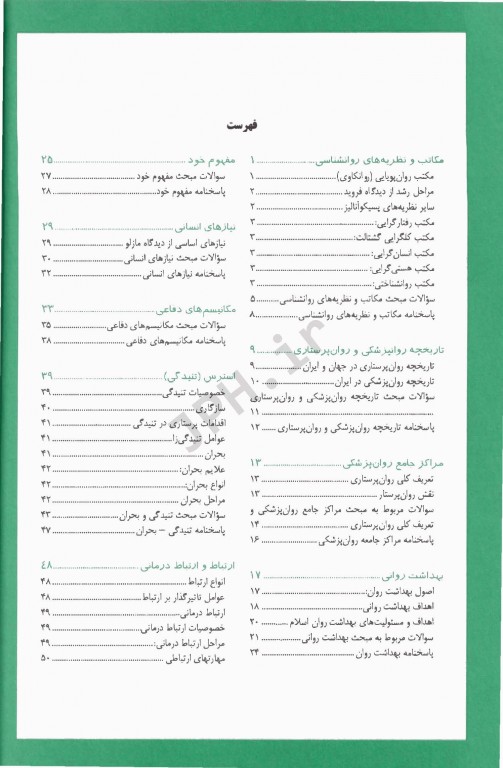 فهرست
مکاتب و نظریه‌های روانشناسی ۱
مکتب روان‌پویایی (روانکاوی) ۱
مراحل رشد از دیدگاه فروید ۲
سایر نظریه‌های پسیکوآنالیز ۲
مکتب رفتارگرایی: ۳
مکتب کلگرایی گشتالت: ۳
مکتب انسان‌گرایی: ۳
مکتب هستی‌گرایی: ۳
مکتب روانشناختی: ۳
سؤالات مبحث مکاتب و نظریه‌های روانشناسی ۵
پاسخنامه مکاتب و نظریه‌های روانشناسی ۸
تاریخچه روانپزشکی و روان‌پرستاری ۹
تاریخچه روان‌پرستاری در جهان و ایران ۹
تاریخچه روان‌پزشکی در ایران ۱۰
سؤالات مبحث تاریخچه روان‌پزشکی و روان‌پرستاری
۱۱
پاسخنامه تاریخچه روان‌پزشکی و روان‌پرستاری ۱۲
مراکز جامع روان‌پزشکی ۱۳
تعریف کلی روان‌پرستاری ۱۳
نقش روان‌پرستار ۱۳
سوالات مربوط به مبحث مراکز جامع روان‌پزشکی و
تعریف کلی روان‌پرستاری ۱۴
پاسخنامه مراکز جامعه روان‌پزشکی ۱۶
بهداشت روانی ۱۷
اصول بهداشت روان: ۱۷
اهداف بهداشت روانی ۱۸
اهداف و مسئولیت‌های بهداشت روان اسلام ۲۰
سوالات مربوط به مبحث بهداشت روانی ۲۱
پاسخنامه بهداشت روان ۲۴
مفهوم خود ۲۵
سوالات مبحث مفهوم خود ۲۷
پاسخنامه مفهوم خود ۲۸
نیازهای انسانی ۲۹
نیازهای اساسی از دیدگاه مازلو ۲۹
سؤالات مبحث نیازهای انسانی ۳۰
پاسخنامه نیازهای انسانی ۳۲
مکانیسم‌های دفاعی ۳۳
سؤالات مبحث مکانیسم‌های دفاعی ۳۵
پاسخنامه مکانیسم‌های دفاعی ۳۸
استرس (تنیدگی) ۳۹
خصوصیات تنیدگی ۳۹
سازگاری ۴۰
اقدامات پرستاری در تنیدگی ۴۱
عوامل تنیدگی‌زا ۴۱
بحران ۴۱
علایم بحران: ۴۲
انواع بحران: ۴۲
مراحل بحران ۴۲
سؤالات مبحث تنیدگی و بحران ۴۳
پاسخنامه تنیدگی – بحران ۴۷
ارتباط و ارتباط درمانی ۴۸
انواع ارتباط ۴۸
عوامل تاثیرگذار بر ارتباط ۴۸
ارتباط درمانی ۴۹
خصوصیات ارتباط درمانی ۴۹
مراحل ارتباط درمانی: ۴۹
مهارتهای ارتباطی ۵۰
JPH.ir